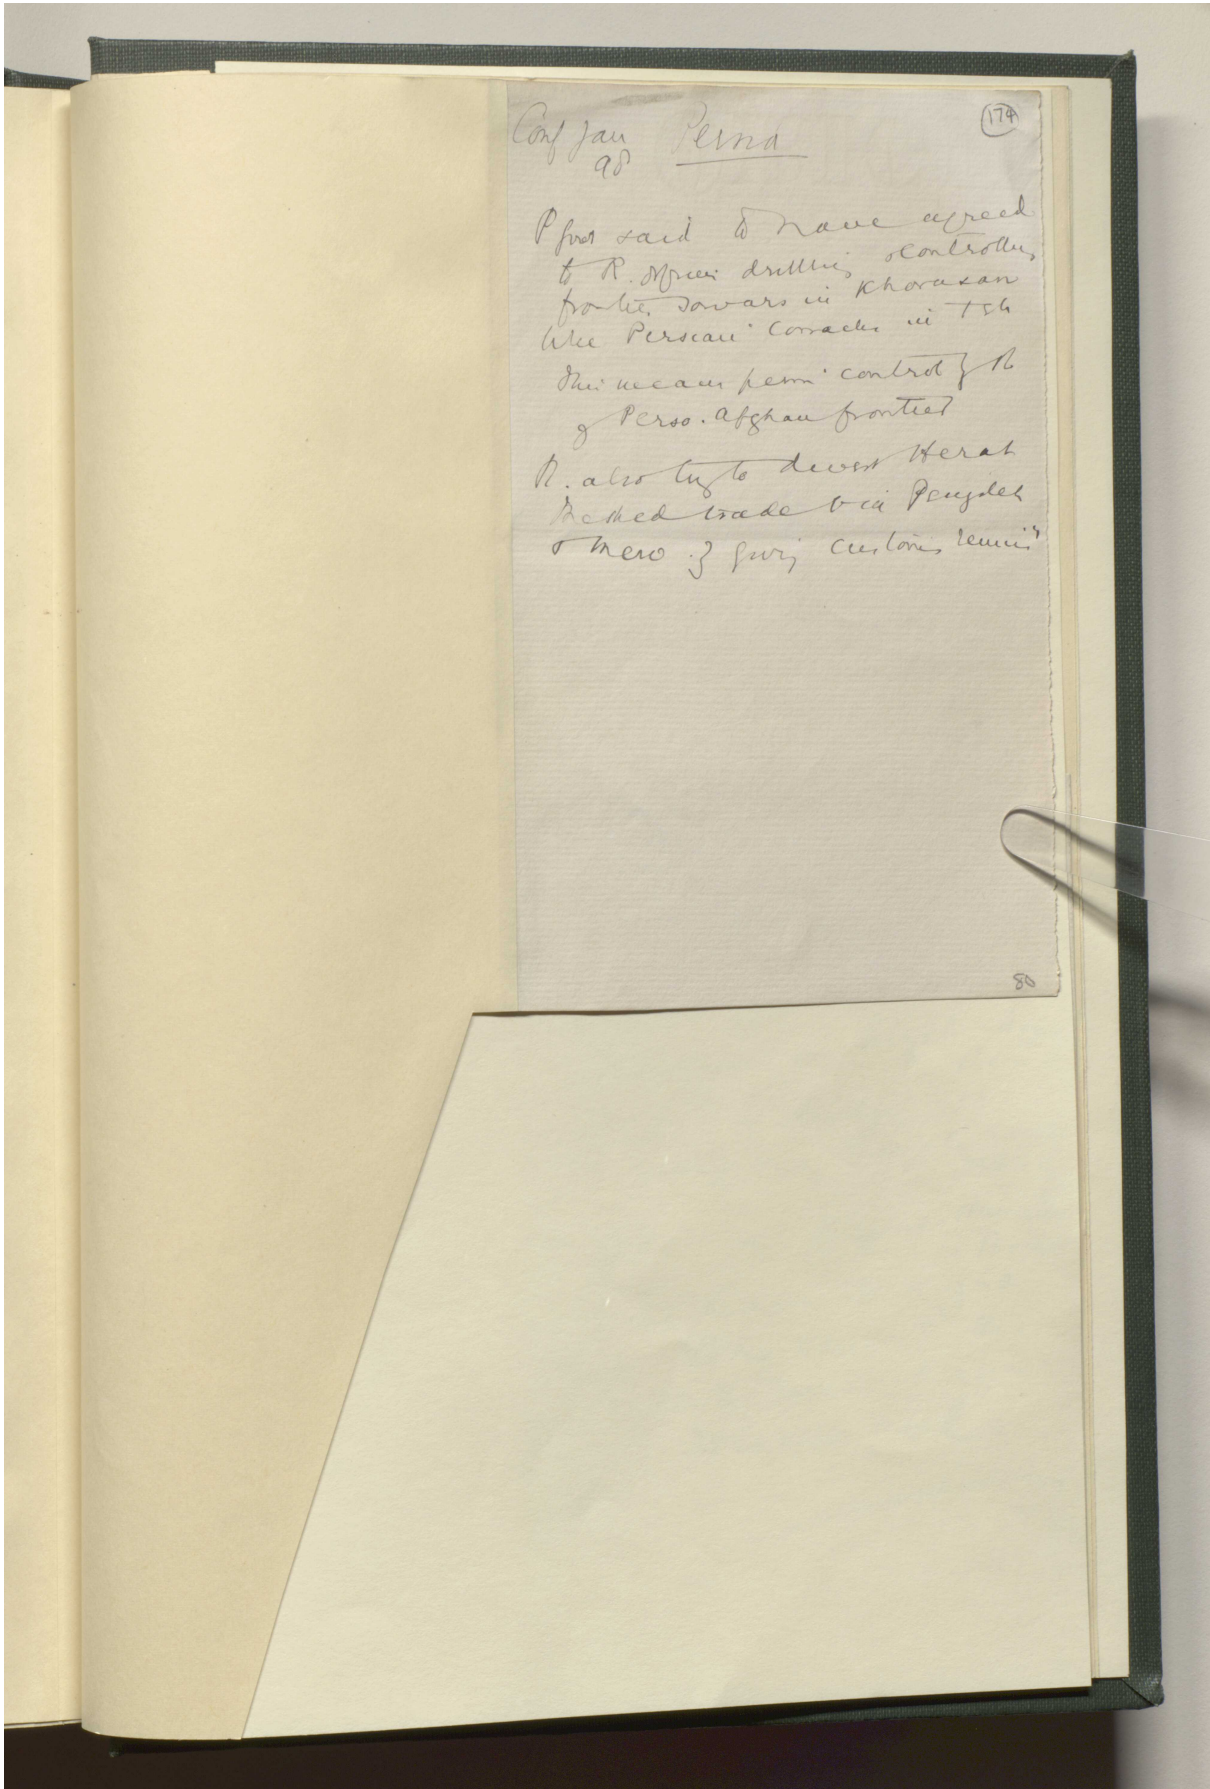 174
Conf Jan Persia
98
P govt said to have agreed
to R. officers drilling & controlling
frontier sowars in Khorasan
like Persian Cossacks in Teh
This means control of
of Perso-Afghan frontier
R. also trying to divert Herat
Meshed trade via Penjdeh
& Merv by giving customs
80